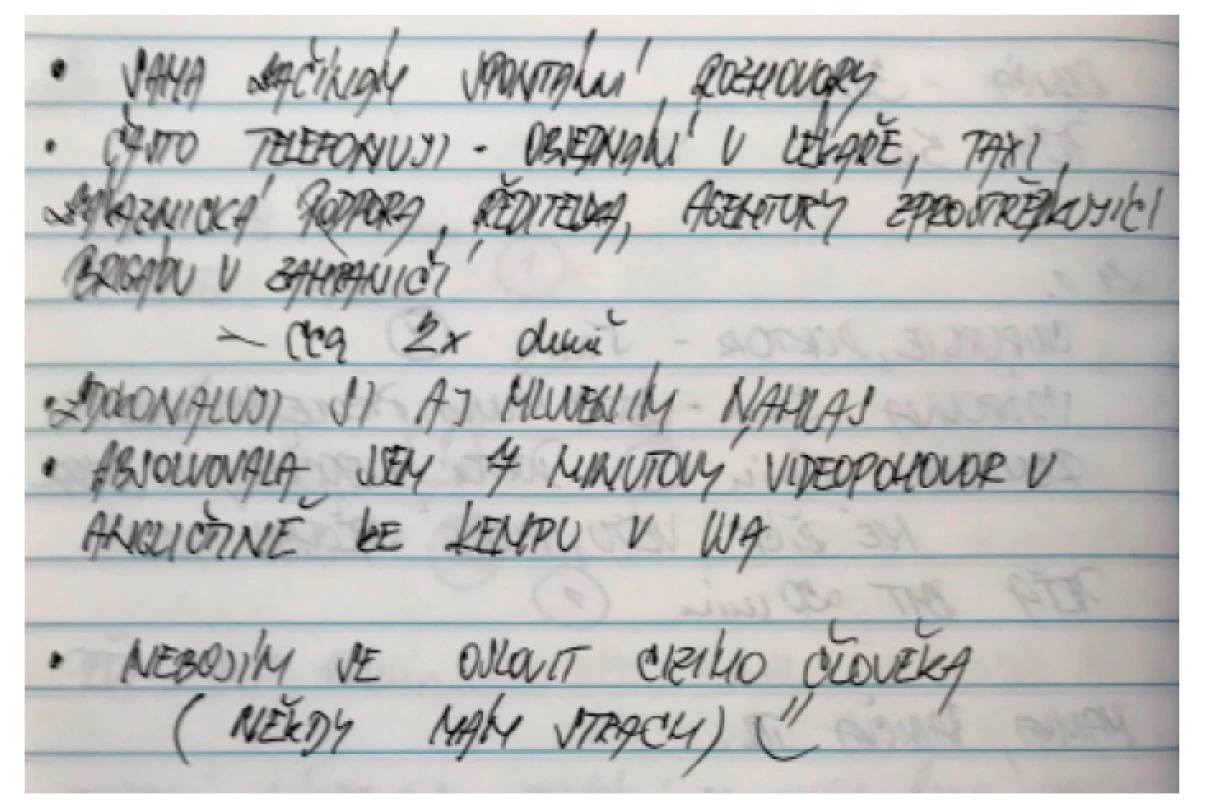 • SAMA ZAČÍNÁM SPONTÁNNÍ ROZHOVORY
• ČASTO TELEFONUJI - OBJEDNÁNÍ U LÉKAŘE, TAXI,
ZÁKAZNICKÁ PODPORA, ŘEDITELKA, AGENTURY ZPROSTŘEDKUJÍCÍ
BRIGÁDU V ZAHRANIČÍ
– cca 2x denně
• ZDOKONALUJI SI AJ MLUVENÍM NAHLAS
• ABSOLVOVALA JSEM 7 MINUTOVÝ VIDEOPOHOVOR V
ANGLIČTINĚ KE KEMPU V USA
• NEBOJÍM SE OSLOVIT CIZÍHO ČLOVĚKA
(NĚKDY MÁM STRACH)